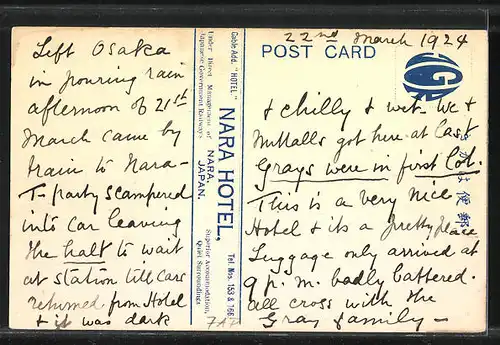 22nd March 1924
POST CARD
Left Osaka
in pouring rain
afternoon of 21st
March came by
train to Nara-
T- party scampered
into car leaving
the halt to wait
at station till cars
returned from Hotel
& it was dark
Cable Add. "HOTEL"
NARA HOTEL,
NARA,
JAPAN.
Under Direct Management of
Japanese Government Railways
Tel. Nos. 153 & 166
Superior Accommodation,
Quiet Surroundings
& chilly & wet- We &
Nuttalls got here at last
Grays were in first lot.
This is a very nice
Hotel & its a pretty place
Luggage only arrived at
9 p.m. badly battered.
all cross with the
Gray family-
きかは便郵